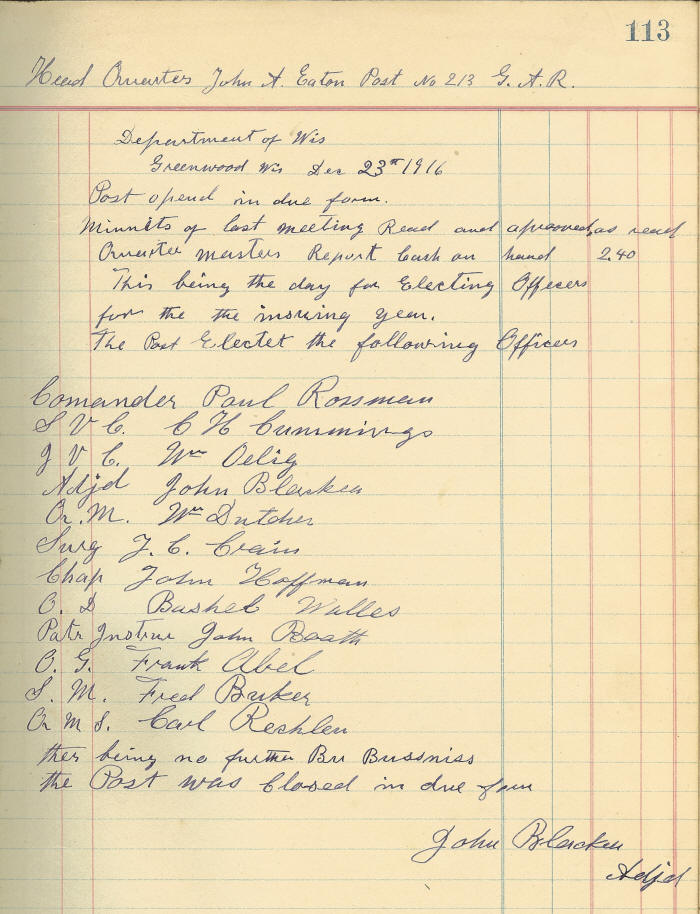 113
Head Quarters John A. Eaton Post No 213 G. A. R.
Department of Wis
Greenwood Wis Dec 23rd 1916
Post opend in due form.
Minnits of last meeting Read and aprooved as read
Quarter masters Report Cash on hand 2.40
This being the day for Electing Officers
for the the insuing year.
The Post Electet the following Officers
Comander Paul Rossman
S V C. C H Cummings
J V C. Wm Oelig
Adjd John Blacken
Qr. M. Wm Dutcher
Surg J. C. Crain
Chap John Hoffman
O. D Bashel Walles
Patr Instruc John Booth
O. G. Frank Abel
S. M. Fred Buker
Qr M S. Carl Reshlen
ther being no further Bu Bussniss
the Post was Closed in due form
John Blacken
Adjd